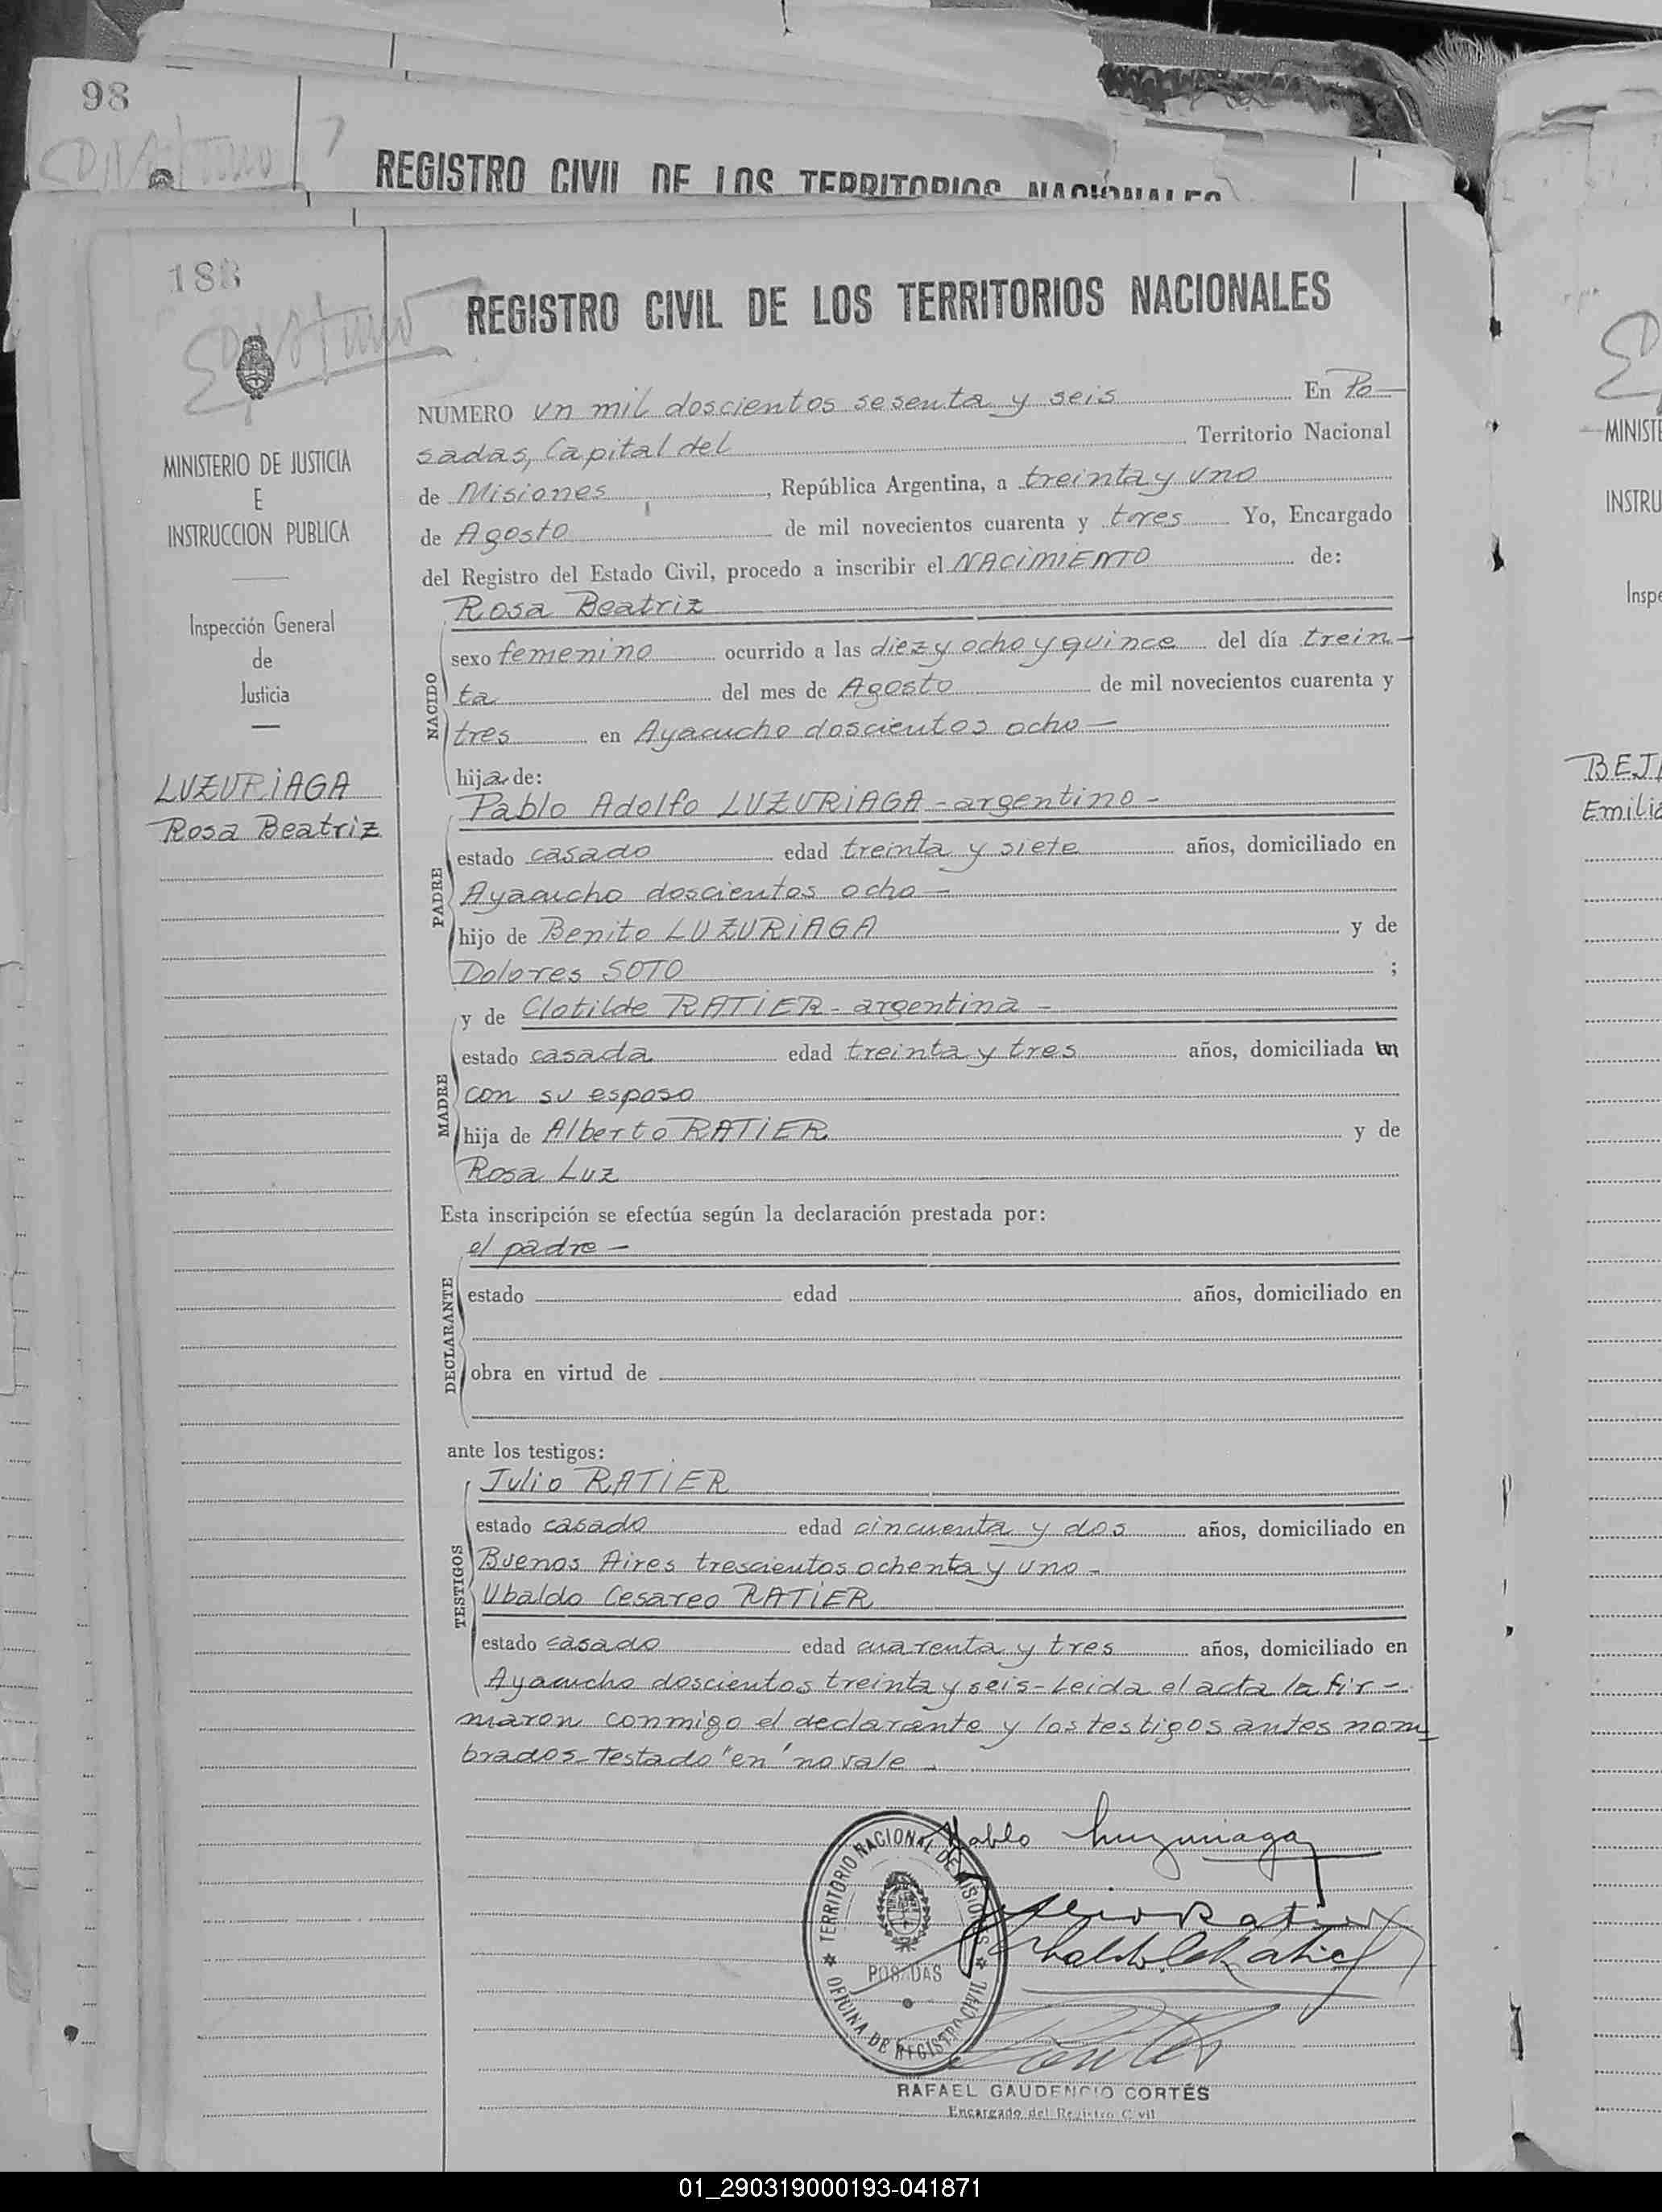 98
REGISTRO CIVIL DE LOS TERRITORIOS NACIONALES
188
REGISTRO CIVIL DE LOS TERRITORIOS NACIONALES
NUMERO un mil doscientos sesenta y seis En Po-
sadas, Capital del Territorio Nacional
de Misiones, República Argentina, a treinta y uno
de Agosto de mil novecientos cuarenta y tres Yo, Encargado
del Registro del Estado Civil, procedo a inscribir el NACIMIENTO de:
MINISTERIO DE JUSTICIA
E
INSTRUCCION PUBLICA
Inspección General
de
Justicia
LUZURIAGA
Rosa Beatriz
NACIDO
Rosa Beatriz
sexo femenino ocurrido a las diez y ocho y quince del día trein-
ta del mes de Agosto de mil novecientos cuarenta y
tres en Ayacucho doscientos ocho-
hija de:
PADRE
Pablo Adolfo LUZURIAGA-argentino-
estado casado edad treinta y siete años, domiciliado en
Ayacucho doscientos ocho-
hijo de Benito LUZURIAGA y de
Dolores SOTO ;
MADRE
y de Clotilde RATIER-argentina-
estado casada edad treinta y tres años, domiciliada en
con su esposo
hija de Alberto RATIER y de
Rosa Luz
Esta inscripción se efectúa según la declaración prestada por:
DECLARANTE
el padre-
estado edad años, domiciliado en
obra en virtud de
ante los testigos:
TESTIGOS
Julio RATIER
estado casado edad cincuenta y dos años, domiciliado en
Buenos Aires trescientos ochenta y uno-
Ubaldo Cesareo RATIER
estado casado edad cuarenta y tres años, domiciliado en
Ayacucho doscientos treinta y seis-Leida el acta la fir-
maron conmigo el declarante y los testigos antes nom-
brados-Testado "en" no vale-
Pablo Luzuriaga
Julio Ratier
Ubaldo C. Ratier
TERRITORIO NACIONAL DE MISIONES
POSADAS
OFICINA DE REGISTRO CIVIL
RAFAEL GAUDENCIO CORTÉS
Encargado del Registro Civil
MINISTE
INSTRU
Inspe
BEJ
Emilia
01_290319000193-041871